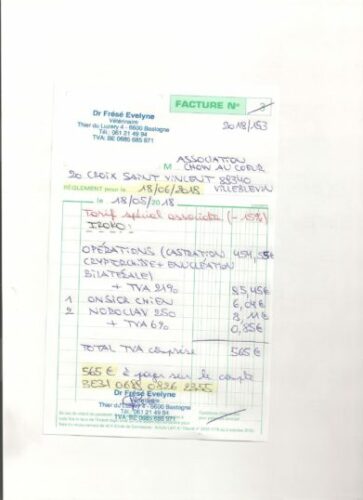 Dr Frésé Evelyne
Vétérinaire
Thier du Luzery 4 - 6600 Bastogne
Tél.: 061 21 49 94
TVA: BE 0685 685 871
FACTURE N°
2018/153
ASSOCIATION
M CHOW AU COEUR
20 CROIX SAINT VINCENT 89340
VILLEBLEVIN
RÉGLEMENT pour le 18/06/2018
le 18/05/2018
Tarif spécial associatif (-15%)
IROKO:
OPÉRATIONS (CASTRATION
CRYPTORCHIDE + ENUCLÉATION
BILATÉRALE)
+ TVA 21% 85,45€
1 ONSIOR CHIEN
2 NOROCLAV 250 8,11€
+ TVA 6% 0,85€
TOTAL TVA comprise 565€
565€ à payer sur le compte
Dr Frésé Evelyne
Vétérinaire
Thier du Luzery 4 - 6600 Bastogne
Tél.: 061 21 49 94
TVA: BE 0685 685 871